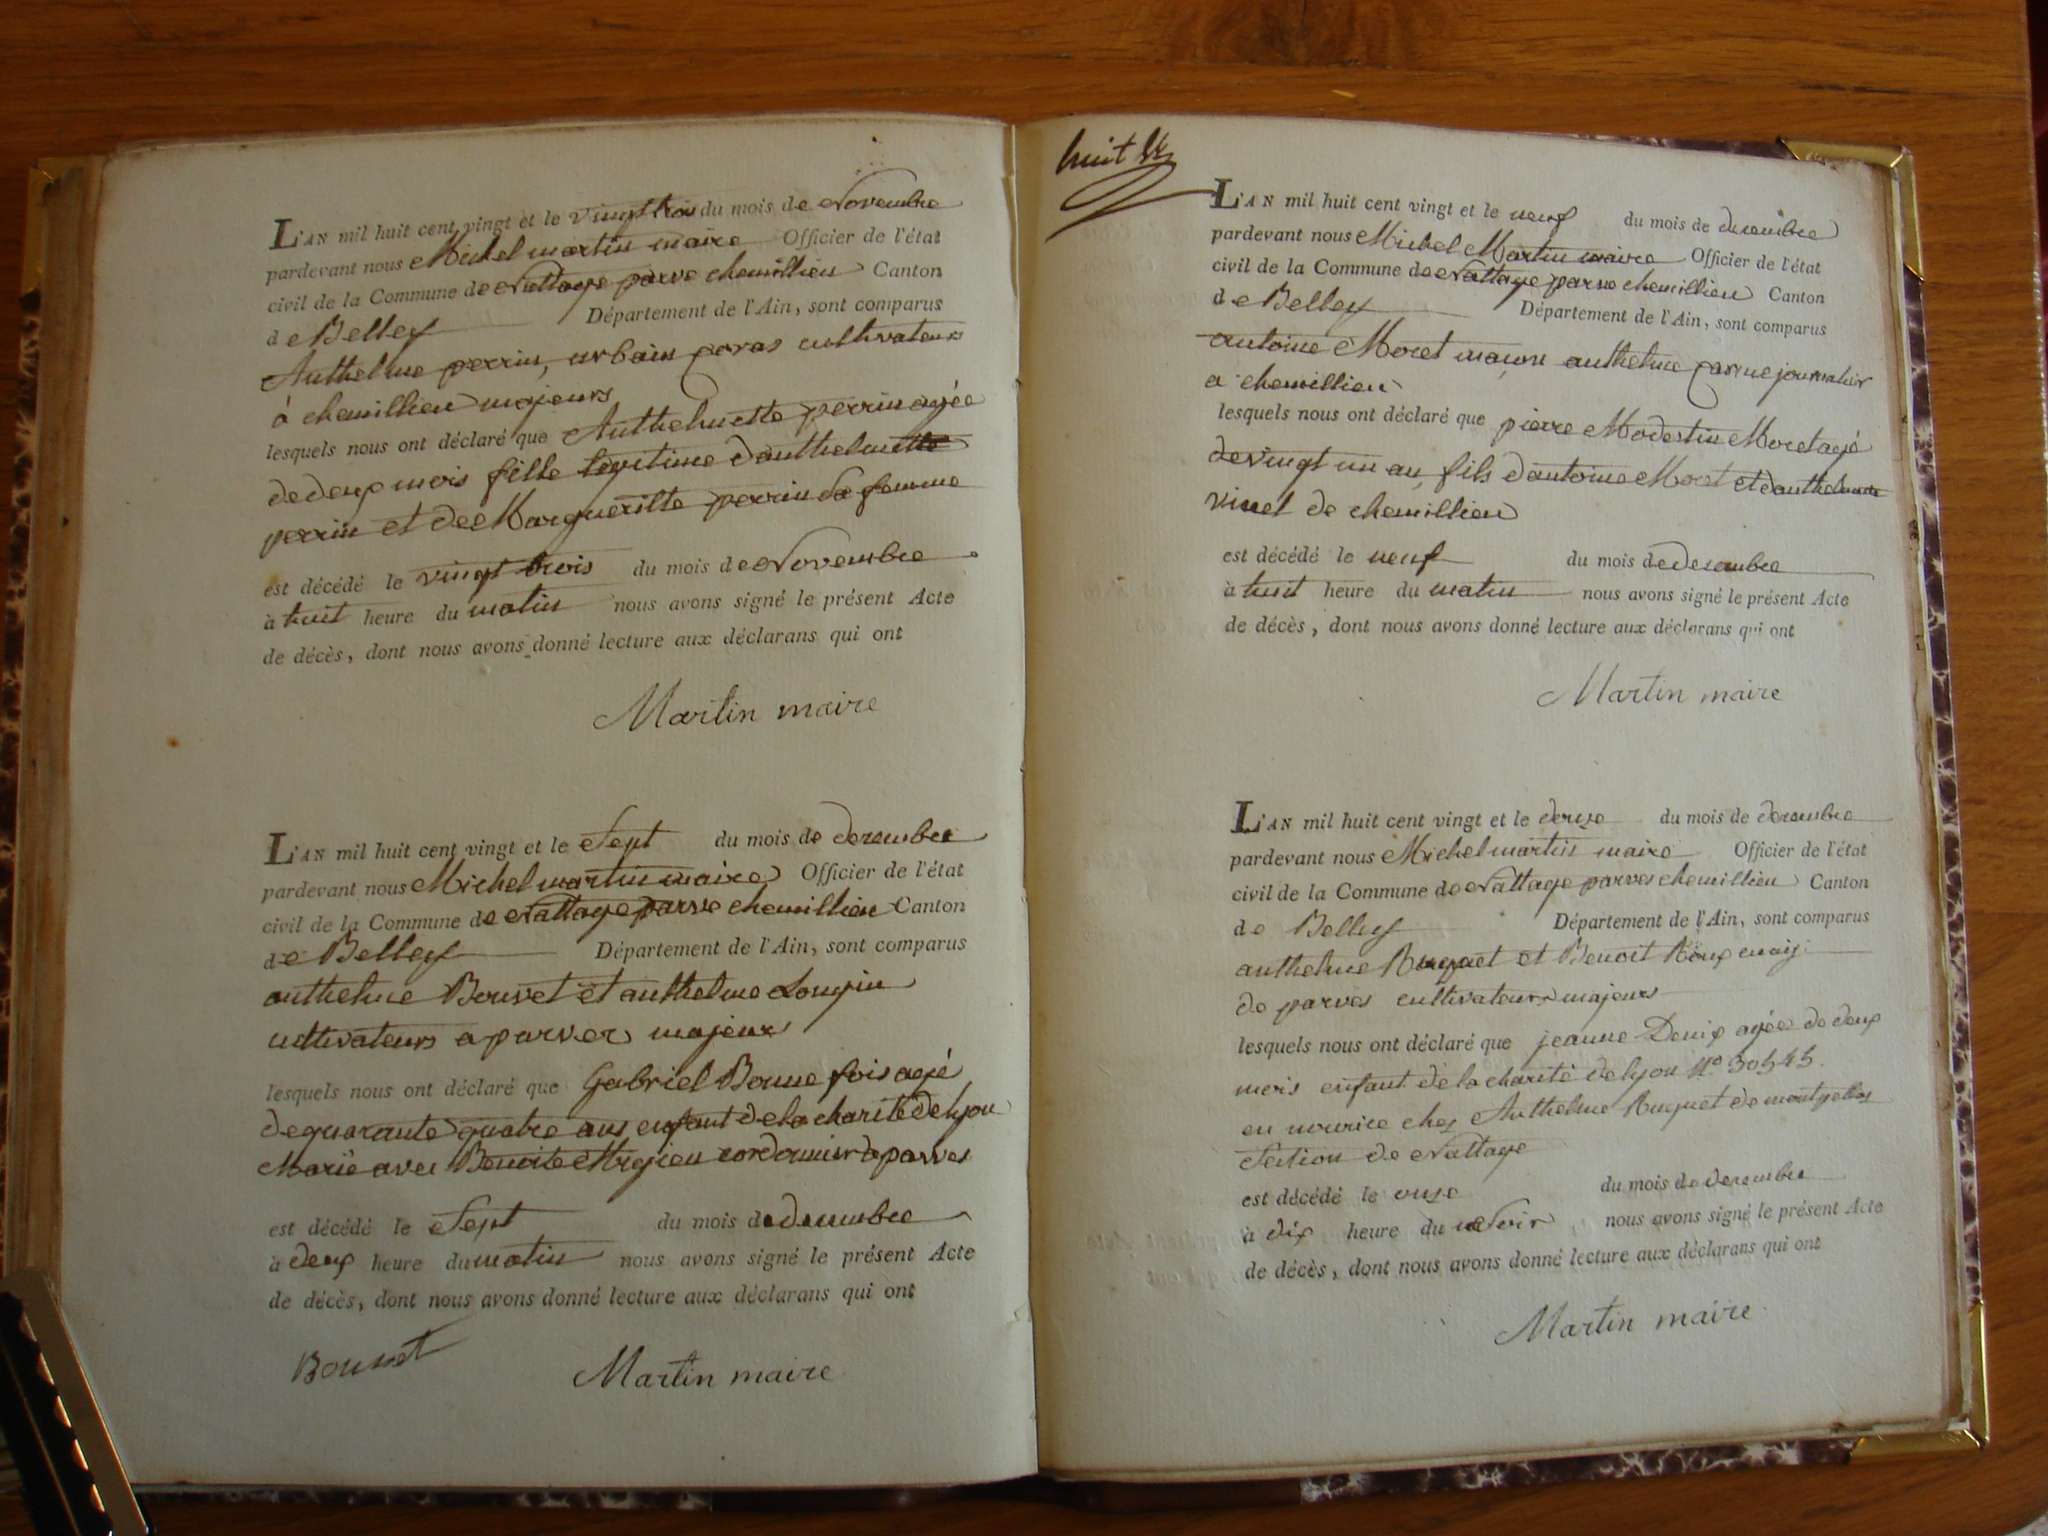 L'AN mil huit cent vingt et le vingt trois du mois de Novembre
pardevant nous Michel martin maire Officier de l'état
civil de la Commune de Nattage parve chemillieu Canton
de Belley Département de l'Ain, sont comparus
Anthelme perrin, urbain cultivateurs
à chemillieu majeurs
lesquels nous ont déclaré que Anthelmette perrin agée
de deux mois fille légitime d'anthelme
perrin et de Margueritte perrin sa femme
est décédé le vingt trois du mois de Novembre
à huit heure du matin nous avons signé le présent Acte
de décès, dont nous avons donné lecture aux déclarans qui ont
Martin maire
L'AN mil huit cent vingt et le Sept du mois de decembre
pardevant nous Michel martin maire Officier de l'état
civil de la Commune de Nattage parve chemillieu Canton
de Belley Département de l'Ain, sont comparus
anthelme Bouvet et anthelme
cultivateurs a parves majeurs
lesquels nous ont déclaré que Gabriel Bonne fois agé
de quarante quatre ans enfant de la charité de lyon
Marié avec Benoite cordonnier de parves
est décédé le Sept du mois de decembre
à deux heure du matin nous avons signé le présent Acte
de décès, dont nous avons donné lecture aux déclarans qui ont
Bouvet Martin maire
huit
L'AN mil huit cent vingt et le neuf du mois de decembre
pardevant nous Michel Martin maire Officier de l'état
civil de la Commune de Nattage parve chemillieu Canton
de Belley Département de l'Ain, sont comparus
antoine Moret maçon anthelme journalier
a chemillieu
lesquels nous ont déclaré que pierre Modestin Moret agé
de vingt un an, fils d'antoine Moret et d'anthelmette
vinet de chemillieu
est décédé le neuf du mois de decembre
à huit heure du matin nous avons signé le présent Acte
de décès, dont nous avons donné lecture aux déclarans qui ont
Martin maire
L'AN mil huit cent vingt et le douze du mois de decembre
pardevant nous Michel martin maire Officier de l'état
civil de la Commune de Nattage parves chemillieu Canton
de Belley Département de l'Ain, sont comparus
anthelme Ruquet et Benoit Roux
de parves cultivateurs majeurs
lesquels nous ont déclaré que jeanne Denix agée de deux
mois enfant de la charité de lyon N° 30545.
en nourice chez Anthelme Ruquet de
Section de Nattage
est décédé le onze du mois de decembre
à dix heure du soir nous avons signé le présent Acte
de décès, dont nous avons donné lecture aux déclarans qui ont
Martin maire